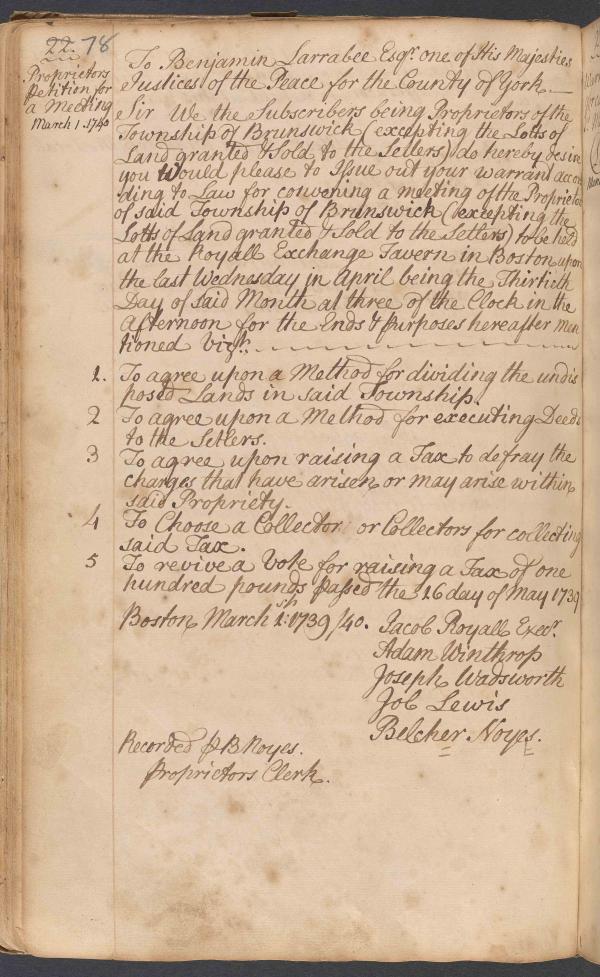 22. 78
Proprietors
Petition for
a Meeting
March 1. 1740
To Benjamin Larrabee Esqr. one of His Majesties
Justices of the Peace for the County of York.
Sir We the Subscribers being Proprietors of the
Township of Brunswick (excepting the Lotts of
Land granted & Sold to the Setlers) do hereby desire
you would please to Issue out your warrant accor
ding to Law for convening a meeting of the Proprietors
of said Township of Brunswick (excepting the
Lotts of Land granted & Sold to the Setlers) to be held
at the Royall Exchange Tavern in Boston upon
the last Wednesday in April being the Thirtieth
Day of said Month at three of the Clock in the
afternoon for the Ends & purposes hereafter men
tioned vizt.
1. To agree upon a Method for dividing the undis
posed Lands in said Township.
2 To agree upon a Method for executing Deeds
to the Setlers.
3 To agree upon raising a Tax to defray the
charges that have arisen or may arise within
said Propriety.
4 To Choose a Collector or Collectors for collecting
said Tax.
5 To revive a Vote for raising a Tax of one
hundred pounds passed the 16 day of May 1739
Boston March 1st: 1739/40.
Jacob Royall Execr.
Adam Winthrop
Joseph Wadsworth
Job Lewis
Belcher Noyes.
Recorded p B Noyes.
Proprietors Clerk.